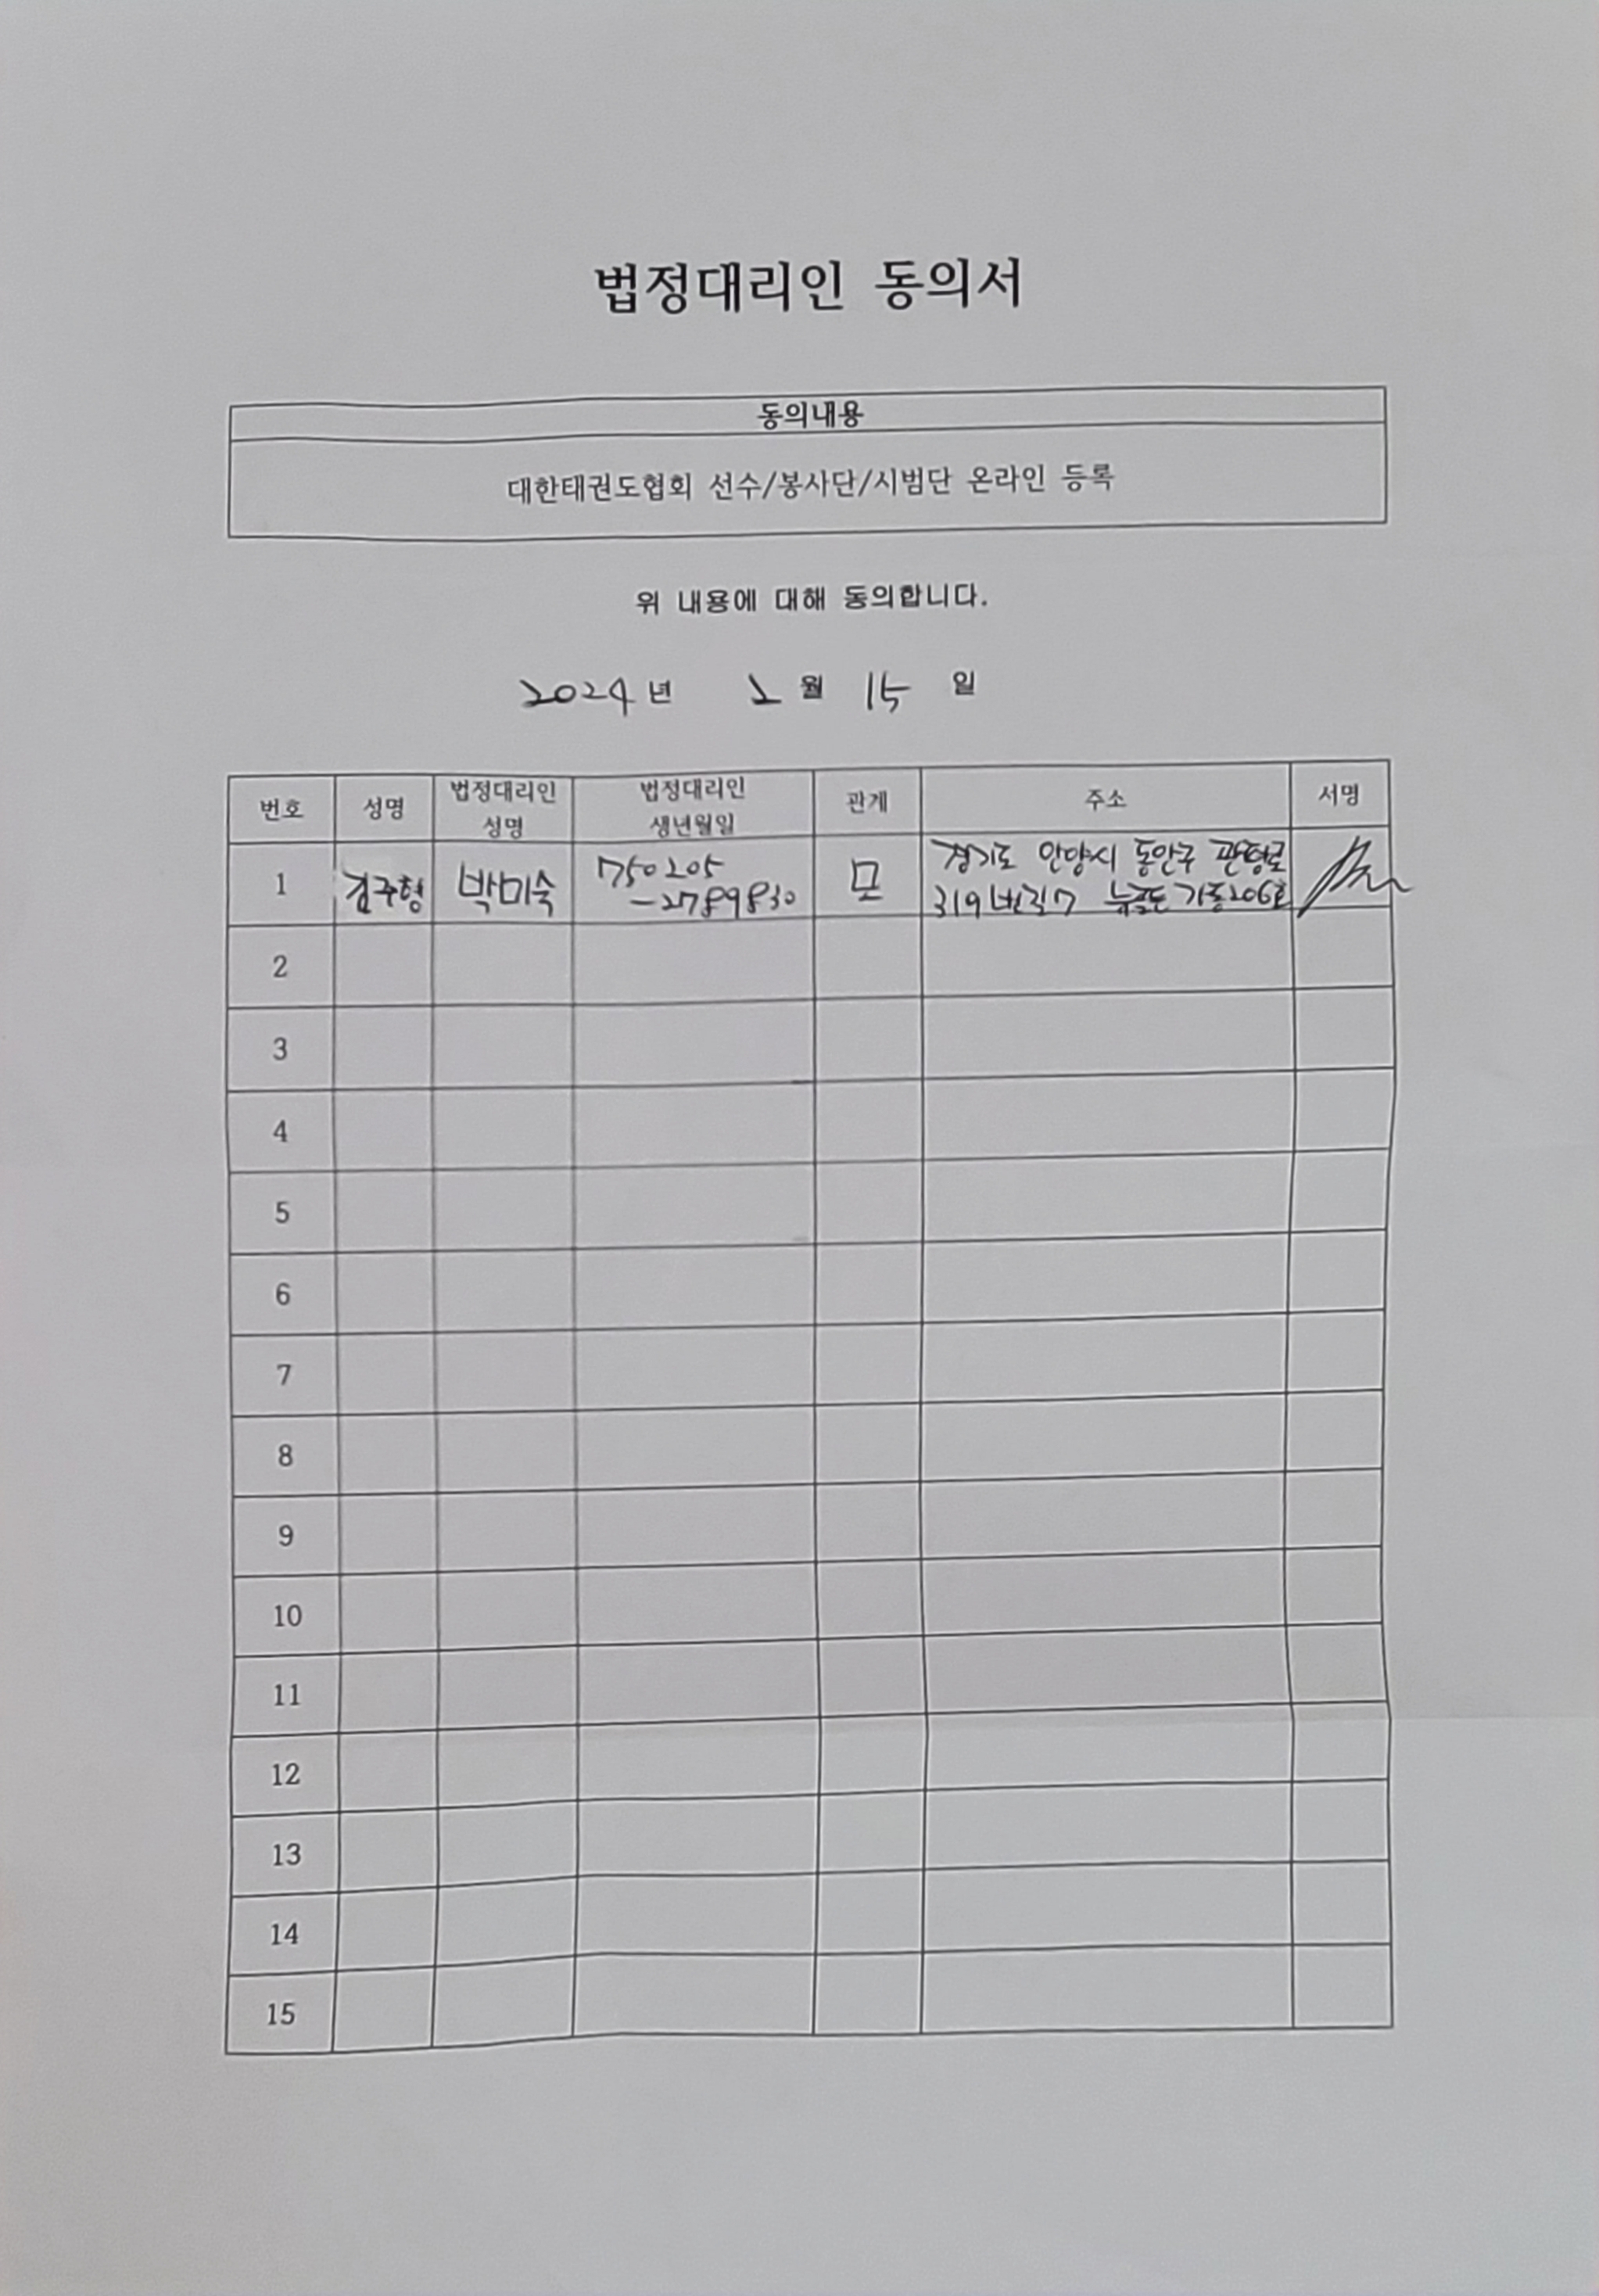 법정대리인 동의서
동의내용
대한태권도협회 선수/봉사단/시범단 온라인 등록
위 내용에 대해 동의합니다.
2024년 2월 15일
번호 성명 법정대리인 성명 법정대리인 생년월일 관계 주소 서명
1 김주형 박미숙 750205 모 경기도 안양시 동안구 관평로
-2789830 319번길7 가동206호
2
3
4
5
6
7
8
9
10
11
12
13
14
15